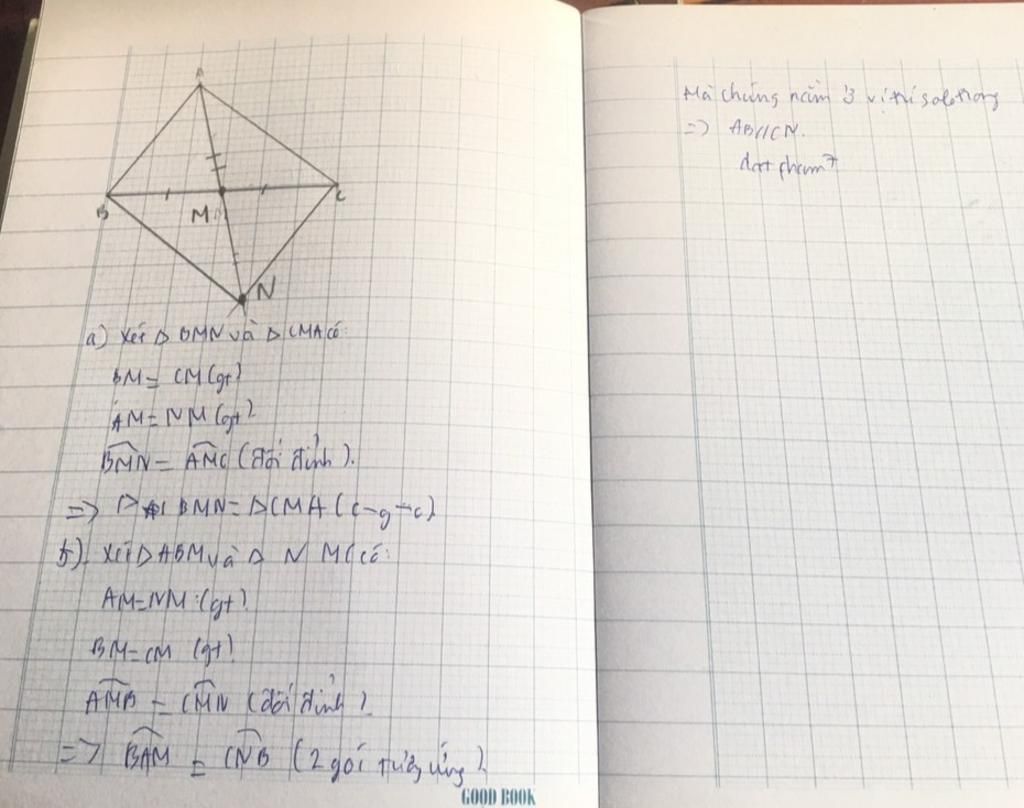 A
B
M
C
N
a) Xét Δ BMN và Δ CMA có:
BM = CM (gt)
AM = NM (gt)
BMN = AMC (đối đỉnh).
=> Δ BMN = ΔCMA (c-g-c)
b). Xét Δ ABM và Δ NMC có:
AM = NM (gt)
BM = CM (gt)
AMB = CMN (đối đỉnh)
=> BAM = CNB (2 gói tương ứng).
GOOD BOOK
Mà chúng nằm ở vị trí sole trong
=> AB//CN.